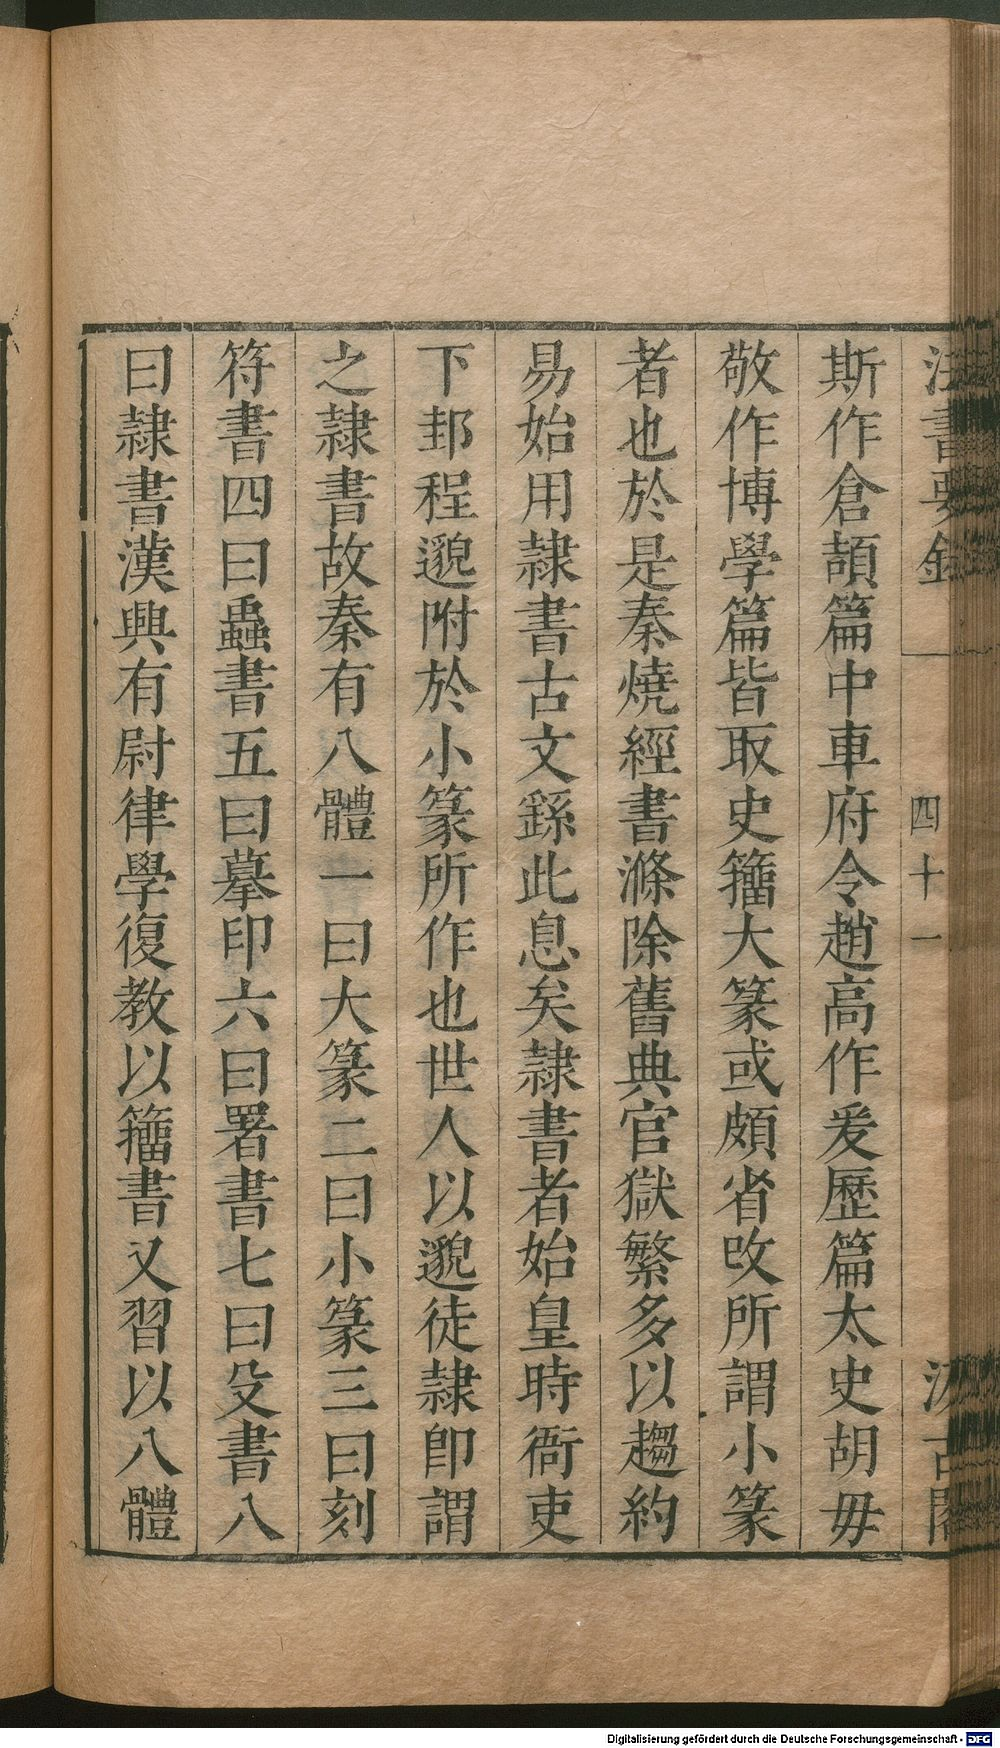 法書要錄
四十一
汲古閣
斯作倉頡篇中車府令趙高作爰歷篇太史胡毋
敬作博學篇皆取史籒大篆或頗省改所謂小篆
者也於是秦燒經書滌除舊典官獄繁多以趨約
易始用隸書古文繇此息矣隸書者始皇時衙吏
下邽程邈附於小篆所作也世人以邈徒隸卽謂
之隸書故秦有八體一曰大篆二曰小篆三曰刻
符書四曰蟲書五曰摹印六曰署書七曰殳書八
曰隸書漢興有尉律學復教以籒書又習以八體
Digitalisierung gefördert durch die Deutsche Forschungsgemeinschaft - DFG